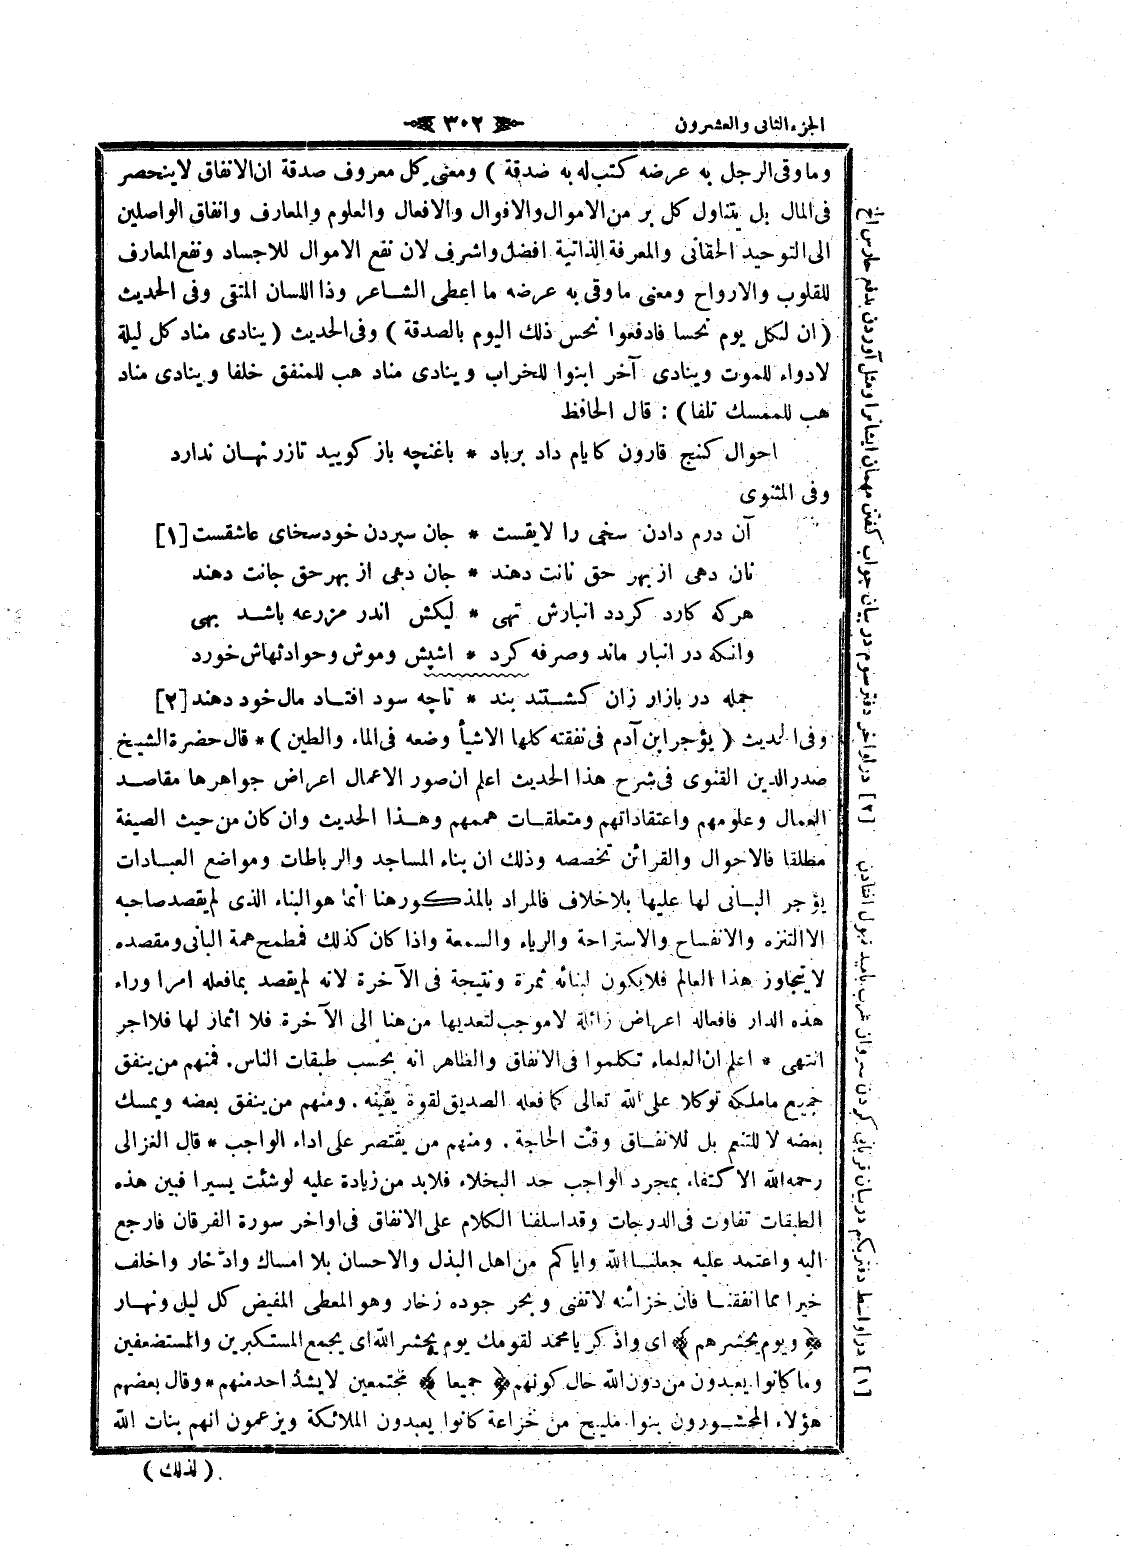 الجزء الثانى والعشرون
٣٠٢
وما وقى الرجل به عرضه كتب له به صدقة ) ومعنى كل معروف صدقة ان الانفاق لا ينحصر
فى المال بل يتناول كل بر من الاموال والاقوال والافعال والعلوم والمعارف وانفاق الواصلين
الى التوحيد الحقانى والمعرفة الذاتية افضل واشرف لان نفع الاموال للاجساد ونفع المعارف
للقلوب والارواح ومعنى ما وقى به عرضه ما اعطى الشاعر وذا اللسان المتقى وفى الحديث
( ان لكل يوم نحسا فادفعوا نحس ذلك اليوم بالصدقة ) وفى الحديث ( ينادى مناد كل ليلة
لا دواء للموت وينادى آخر ابنوا للخراب وينادى مناد هب للمنفق خلفا وينادى مناد
هب للممسك تلفا ) : قال الحافظ
احوال كنج قارون كايام داد برباد * باغنچه باز كوييد تازر نهان ندارد
وفى المثنوى
آن درم دادن سخى را لايقست * جان سپردن خود سخاى عاشقست [١]
نان دهى از بهر حق نانت دهند * جان دهى از بهر حق جانت دهند
هركه كارد كردد انبارش تهى * ليكش اندر مزرعه باشد بهى
وانكه در انبار ماند وصرفه كرد * اشپش وموش وحوادثهاش خورد
جمله در بازار زان كشتند بند * تاچه سود افتاد مال خود دهند [٢]
وفى الحديث ( يؤجر ابن آدم فى نفقته كلها الا شيأ وضعه فى الماء والطين ) * قال حضرة الشيخ
صدر الدين القنوى فى شرح هذا الحديث اعلم ان صور الاعمال اعراض جواهرها مقاصد
العمال وعلومهم واعتقاداتهم ومتعلقات هممهم وهذا الحديث وان كان من حيث الصيغة
مطلقا فالاحوال والقرائن تخصصه وذلك ان بناء المساجد والرباطات ومواضع العبادات
يؤجر البانى لها عليها بلا خلاف فالمراد بالمذكور هنا انما هو البناء الذى لم يقصد صاحبه
الا التنزه والانفساح والاستراحة والرياء والسمعة واذا كان كذلك فمطمح همة البانى ومقصده
لا يتجاوز هذا العالم فلا يكون لبنائه ثمرة ونتيجة فى الآخرة لانه لم يقصد بما فعله امرا وراء
هذه الدار فافعاله اعراض زائلة لا موجب لتعديها من هنا الى الآخرة فلا اثمار لها فلا اجر
انتهى * اعلم ان العلماء تكلموا فى الانفاق والظاهر انه بحسب طبقات الناس . فمنهم من ينفق
جميع ما ملكه توكلا على الله تعالى كما فعله الصديق لقوة يقينه . ومنهم من ينفق بعضه ويمسك
بعضه لا للتنعم بل للانفاق وقت الحاجة . ومنهم من يقتصر على اداء الواجب * قال الغزالى
رحمه الله الاكتفاء بمجرد الواجب حد البخلاء فلابد من زيادة عليه لو شئت يسيرا فبين هذه
الطبقات تفاوت فى الدرجات وقد اسلفنا الكلام على الانفاق فى اواخر سورة الفرقان فارجع
اليه واعتمد عليه جعلنا الله واياكم من اهل البذل والاحسان بلا امساك وادخار واخلف
خيرا مما انفقنا فان خزائنه لا تفنى وبحر جوده زخار وهو المعطى المفيض كل ليل ونهار
﴿ ويوم يحشرهم ﴾ اى واذكر يا محمد لقومك يوم يحشر الله اى يجمع المستكبرين والمستضعفين
وما كانوا يعبدون من دون الله حال كونهم ﴿ جميعا ﴾ مجتمعين لا يشذ احد منهم * وقال بعضهم
هؤلاء المحشورون بنوا مليح من خزاعة كانوا يعبدون الملائكة ويزعمون انهم بنات الله
( لذلك )
[١] در اواسط دفتر يكم در بيان قربانى كردن سروان عرب باميد قبول افتادن
[٢] در اواخر دفتر سوم در بيان جواب كفتن مهمان ايشانرا ومثل آوردن بدفع حارس الخ